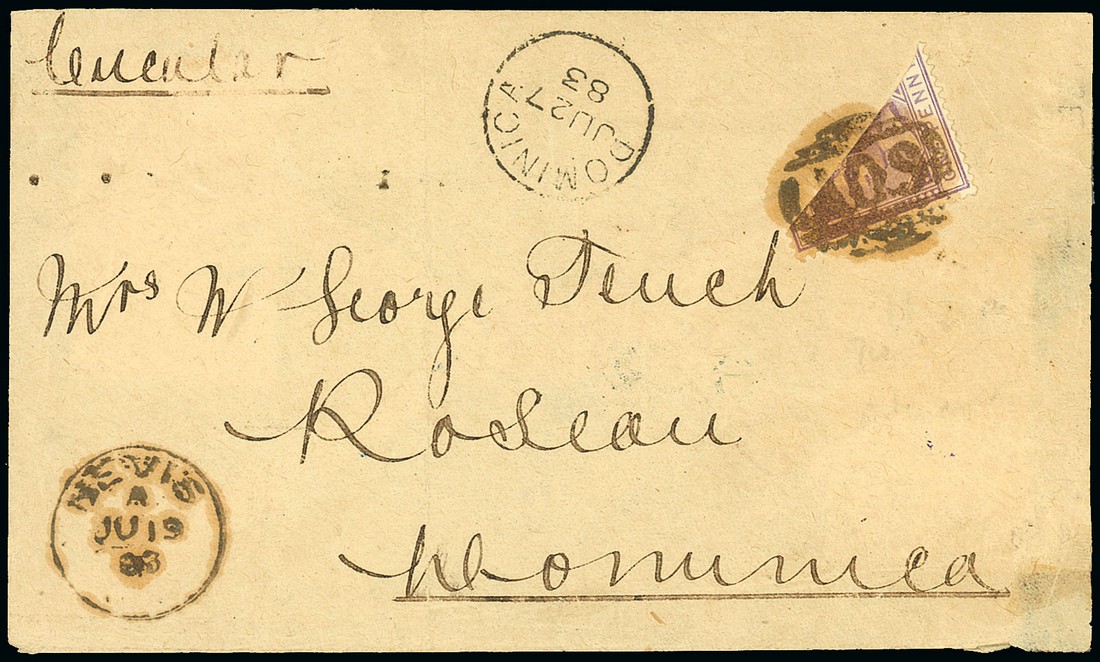 Circular
DOMINICA
JU 27
83
PENNY
A09
Mrs W George Tench
Roseau
Dominica
NEVIS
A
JU 19
83